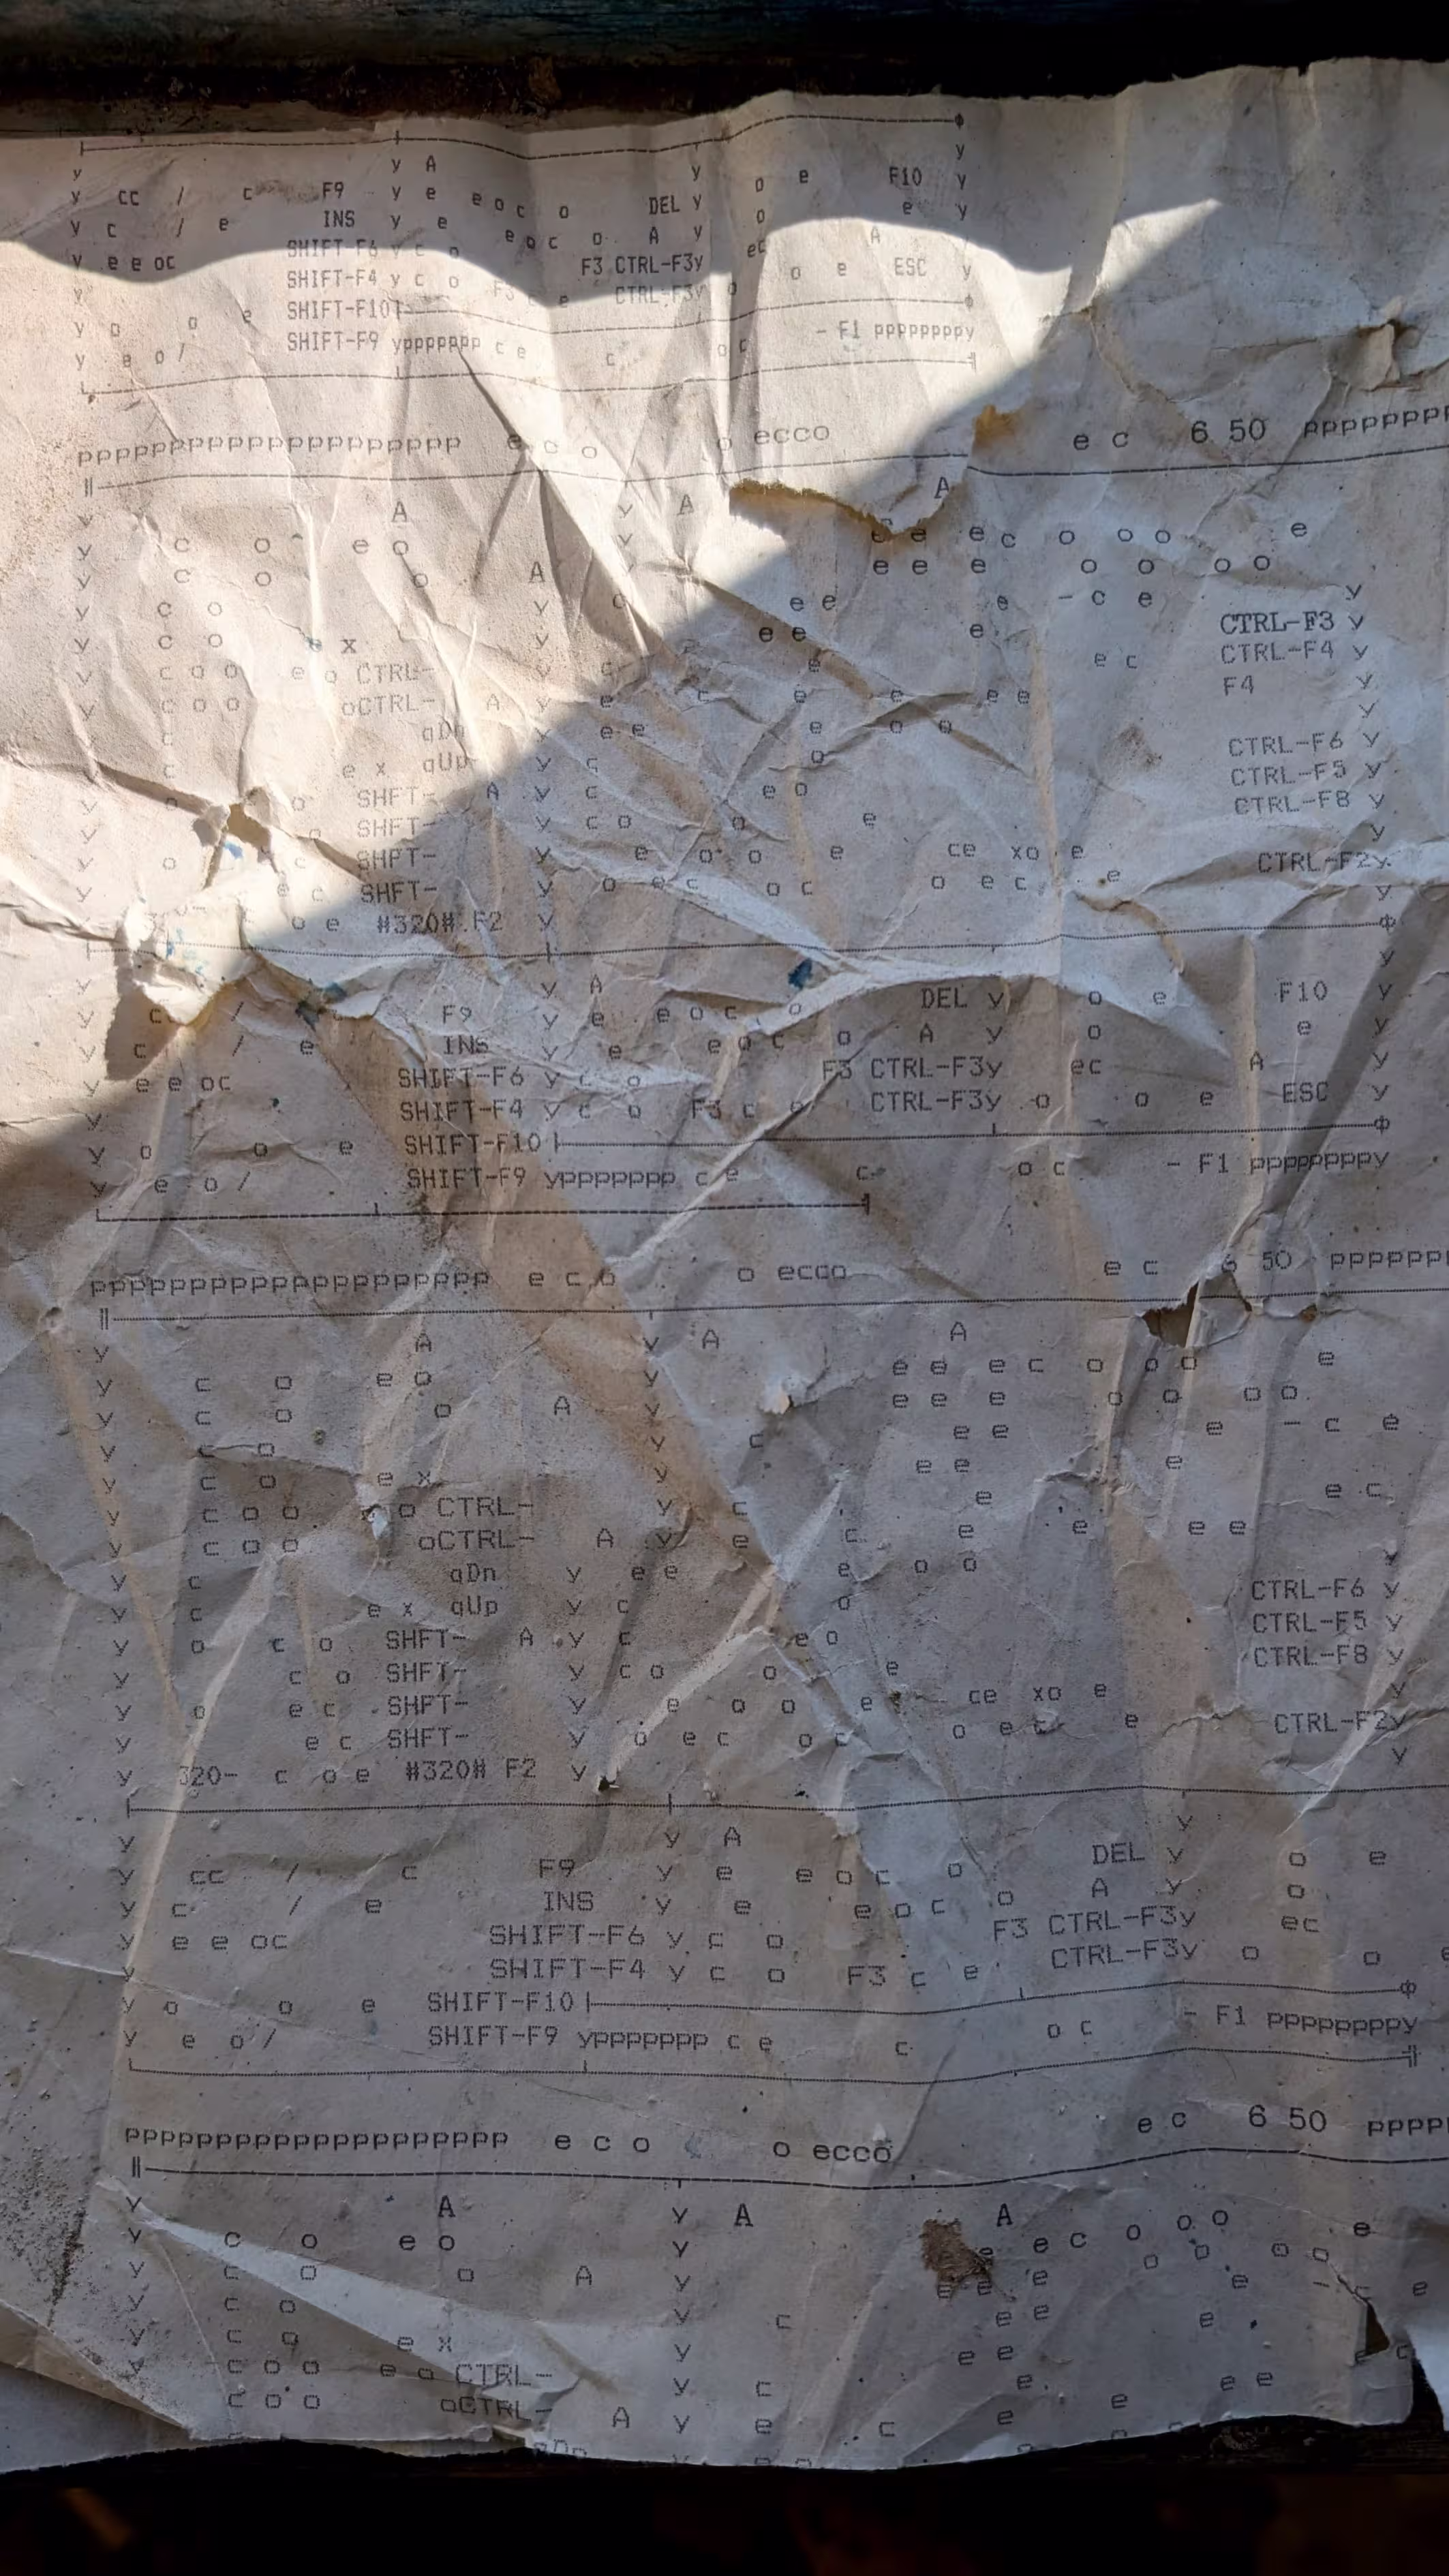 y A y
y cc / c F9 y e e o c o DEL y o e F10 y
y c / e INS y e e o c o A y o e y
y e e oc SHIFT-F6 y c o F3 CTRL-F3y ec A
SHIFT-F4 y c o F3 c e CTRL-F3y o o e ESC y
y o o e SHIFT-F10
y e o / SHIFT-F9 yppppppp c e c o c - F1 ppppppppy
pppppppppppppppppppp e c o o ecco e c 6 50 pppppppp
A y A A
y c o e o y e e e c o o o e
y c o o A e e e o o o o
y c o y c e e e - c e y
y c o e x y e e e CTRL-F3 y
y c o o e o CTRL- y c e e c CTRL-F4 y
y c o o oCTRL- A y e c e e e e F4 y
c qDn y e e e o o y
c e x qUp y c o CTRL-F6 y
y o o SHFT- A y c e o CTRL-F5 y
y o SHFT- y c o o e CTRL-F8 y
y o c SHFT- y e o o e ce xo e y
y e c SHFT- y o e c o c o e c e CTRL-F2y
y o e #320# F2 y y
y A y
y c / F9 y e e o c o DEL y o e F10 y
y c / e INS y e e o c o A y o e y
y e e oc SHIFT-F6 y c o F3 CTRL-F3y ec A y
y SHIFT-F4 y c o F3 c e CTRL-F3y o o e ESC y
y o o e SHIFT-F10
y e o / SHIFT-F9 yppppppp c e c o c - F1 ppppppppy
pppppppppppppppppppp e c o o ecco e c 6 50 ppppppp
y A y A A
y c o e o y e e e c o o o e
y c o o A y e e e o o o o
y c o y c e e e - c e
y c o e x y e e e
y c o o o CTRL- y c e e c
y c o o oCTRL- A y e c e e e e
y c qDn y e e e o o y
y c e x qUp y c o CTRL-F6 y
y o c o SHFT- A y c e o CTRL-F5 y
y c o SHFT- y c o o e CTRL-F8 y
y o e c SHFT- y e o o e ce xo e y
y e c SHFT- y o e c o c o e c e CTRL-F2y
y 320- c o e #320# F2 y y
y y A y
y cc / c F9 y e e o c o DEL y o e
y c / e INS y e e o c o A y o
y e e oc SHIFT-F6 y c o F3 CTRL-F3y ec
y SHIFT-F4 y c o F3 c e CTRL-F3y o o e
y o o e SHIFT-F10
y e o / SHIFT-F9 yppppppp c e c o c - F1 ppppppppy
pppppppppppppppppppp e c o o ecco e c 6 50 ppppp
y A y A A
y c o e o y e e c o o o e
y c o o A y e e e o o o o
y c o y c e e e - c e
y c o e x y e e e
y c o o e o CTRL- y c e e c
c o o oCTRL- A y e c e e e e